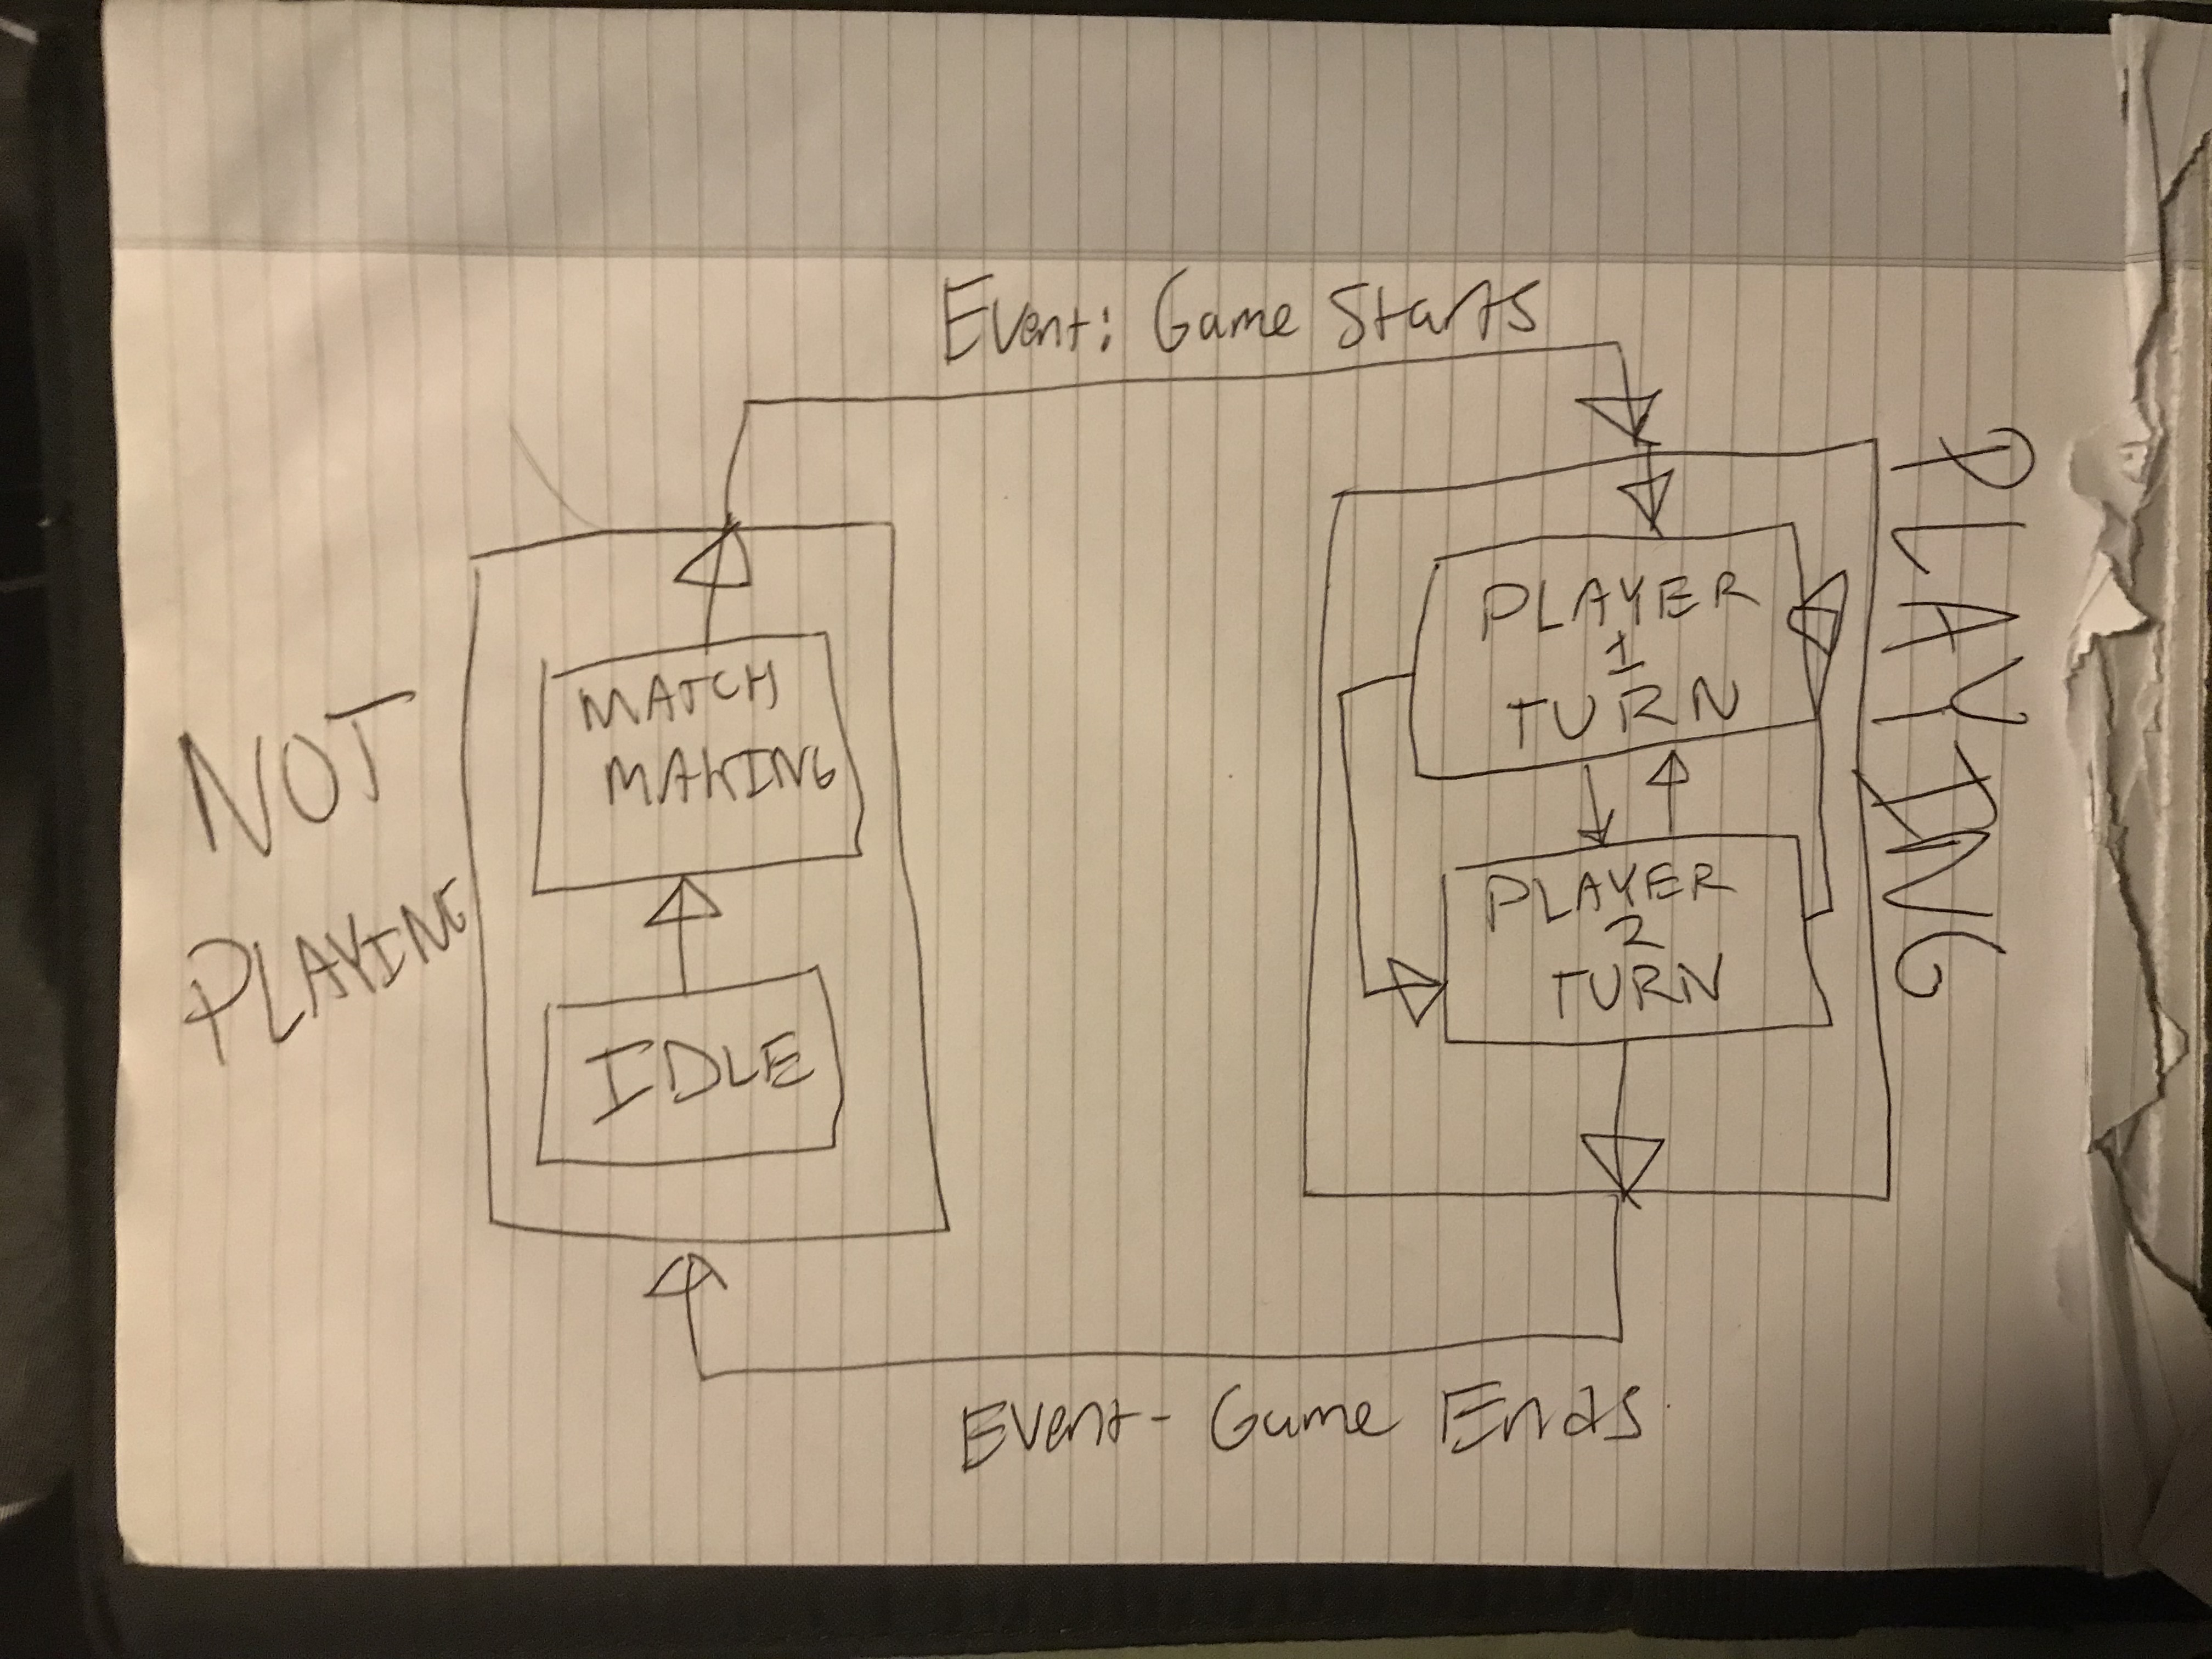 Event: Game Starts
NOT
PLAYING
MATCH
MAKING
IDLE
PLAYER
1
TURN
PLAYER
2
TURN
PLAYING
Event- Game Ends